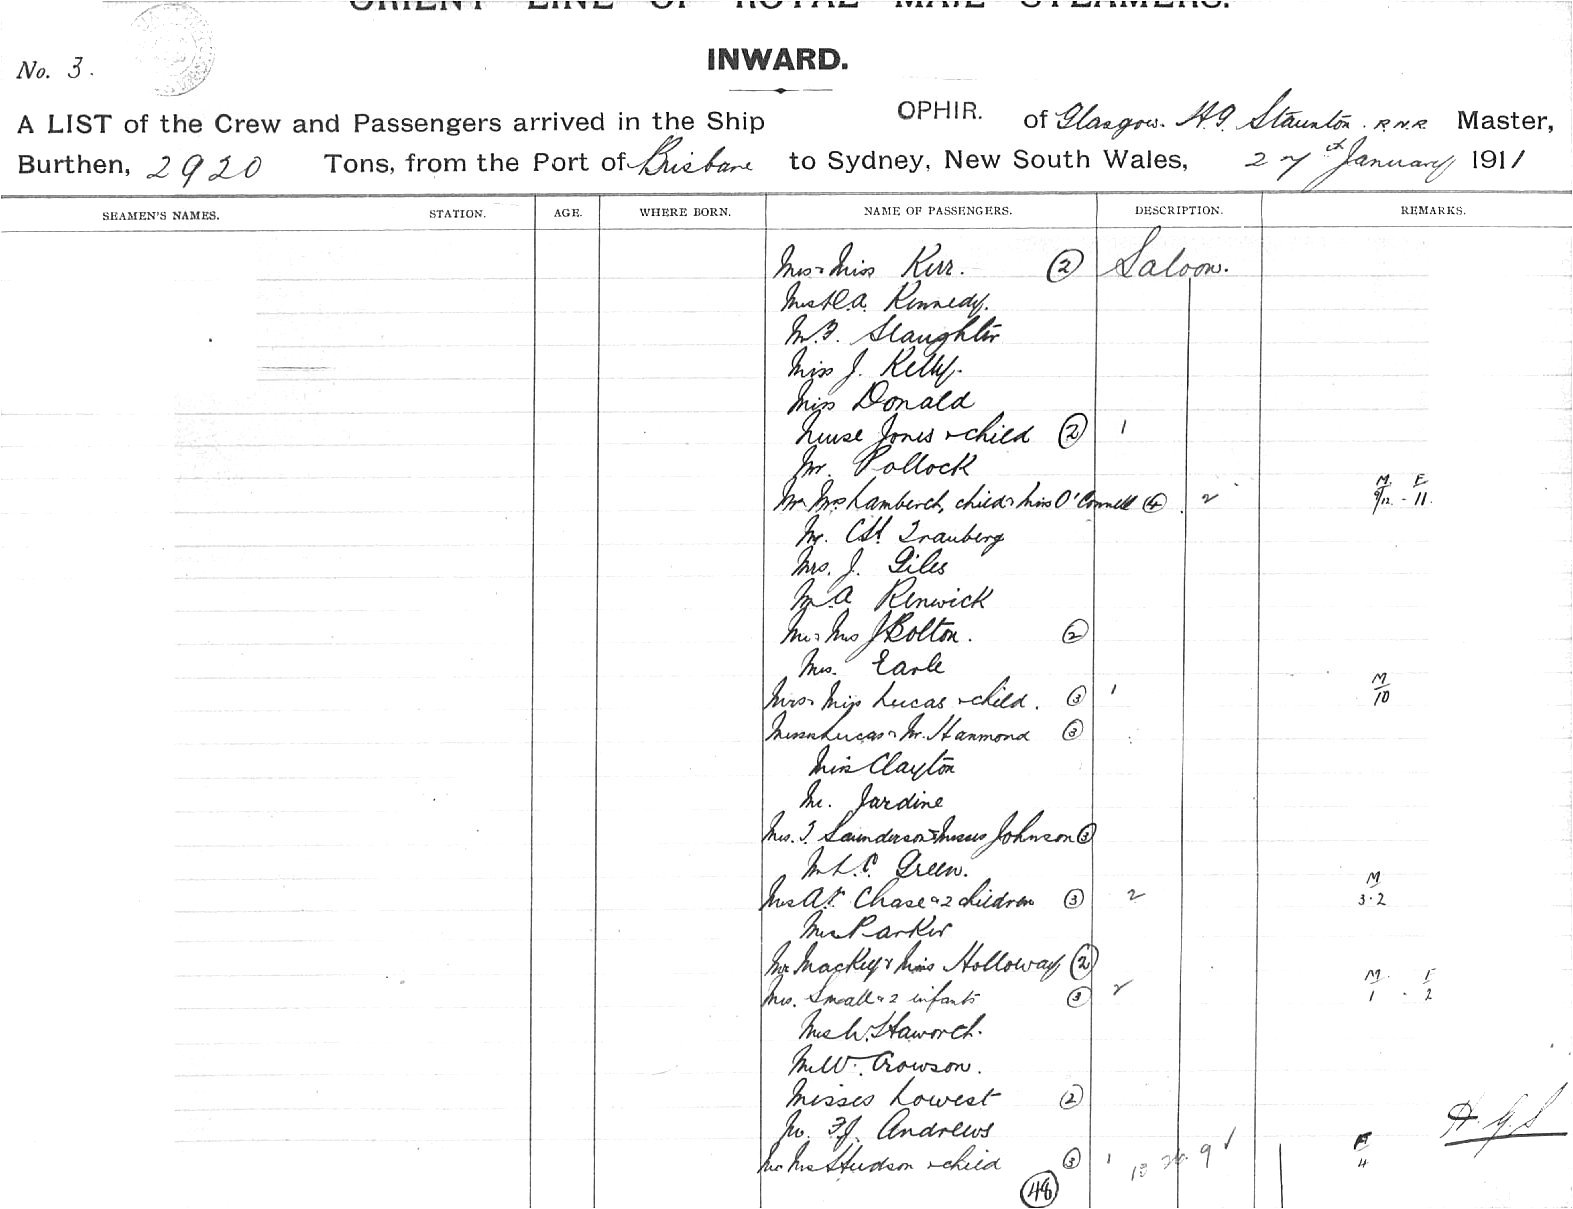 ORIENT LINE OF ROYAL MAIL STEAMERS.
INWARD.
No. 3.
A LIST of the Crew and Passengers arrived in the Ship OPHIR. of Glasgow. H.G. Staunton. R.N.R. Master,
Burthen, 2920 Tons, from the Port of Brisbane to Sydney, New South Wales, 27th January 1911
SEAMEN'S NAMES. STATION. AGE. WHERE BORN. NAME OF PASSENGERS. DESCRIPTION. REMARKS.
Mrs & Miss Kerr. 2 Saloon.
Kennedy.
Mr. F. Slaughter
Miss J. Kelly.
Miss Donald
Nurse Jones & child 2 1
Mr. Pollock
M F
Mr Mrs Lamberch, child & Miss O'Connell 4 2 9/12 - 11.
Mr. C.H. Trauberg
Mrs. J. Giles
Mr A Renwick
Mr & Mrs J Bolton. 2
Mrs. Earle
M
Mrs & Miss Lucas & child. 3 1 10
Misses Lucas & Mr. Hammond 3
Miss Clayton
Mr. Jardine
Mrs. T. Saunderson & Misses Johnson 3
Mr L.C. Green.
M
Mrs A. Chase & 2 children 3 2 3.2
Parker
Mackey & Miss Holloway 2
M. F
Mrs. Small & 2 infants 3 2 1 . 2
Haworth.
Mr W. Crowson.
Misses Lowest 2
H.G.S
Mr. F.J. Andrews
F
Mr Mrs Hudson & child 3 1 9 4
48